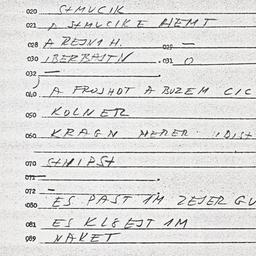 020 SHMUCIK
021 A SHMUCIKE HEMT
028 A REJNH. 029 —
030 IBERBAJTN. 031 O
032 —
040 A FROJHOT A BUZEM CIC
050 KOLNER
060 KRAGN
070 SHHIPS
071 —
072 —
080 ES PAST IM ZEJER GU
081 ES KLEJT IM
089 NAKET